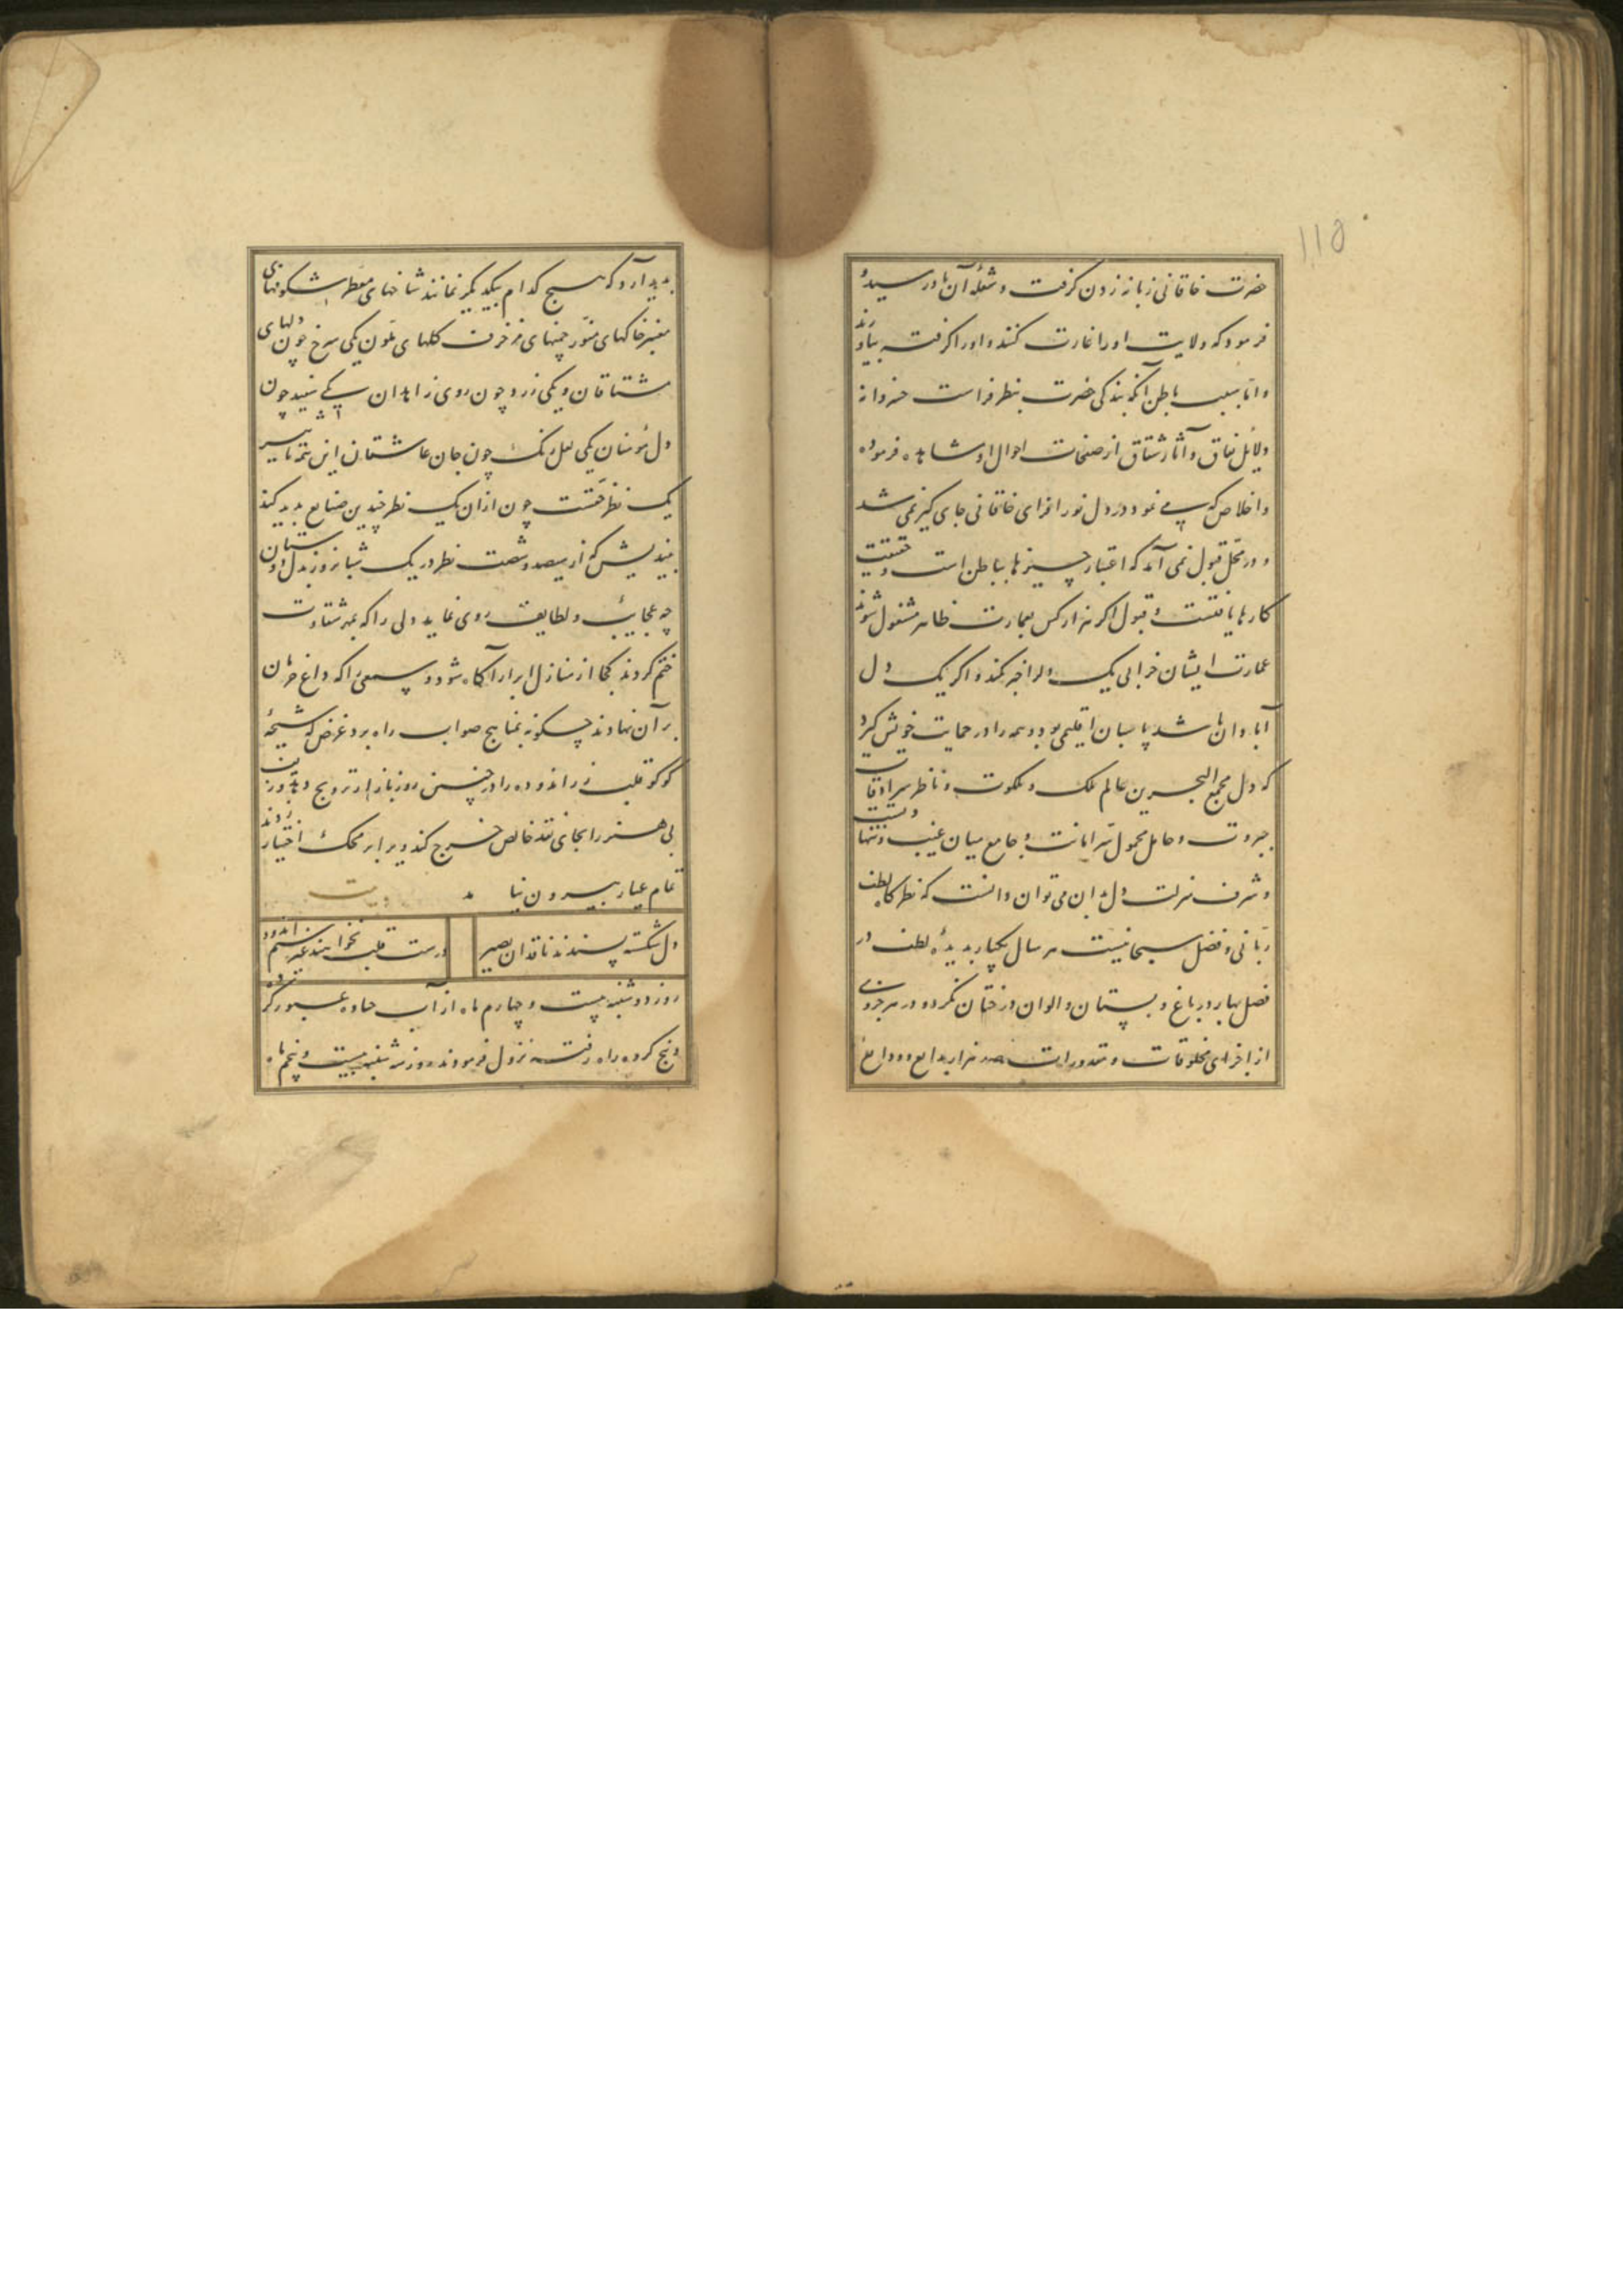 ۱۱۵
حضرت خاقانی زبانه زدن گرفت و شعله آن بدو رسیده
فرمود که ولایت او را غارت کنند و او را گرفته بیاورند
و اما سبب باطن آنکه بندگی حضرت بنظر فراست خسروانه
دلائل نفاق و آثار شقاق از صفحات احوال او مشاهده فرموده
و اخلاص که می نمود در دل نور افزای خاقانی جای گیر نمی شد
و در محل قبول نمی آمد که اعتبار چیزها بباطن است و حقیقت
کارها یافتست و قبول اگر هزار کس بعمارت ظاهر مشغول شوند
عمارت ایشان خرابی یک دل را جبر نکند و اگر یک دل
آبادان باشد پاسبان اقلیمی بود و همه را در حمایت خویش گیرد
که دل مجمع البحرین عالم ملک و ملکوت و ناظر سرادقات
جبروت و حامل محمول سر امانت و جامع میان غیب و
و شرف منزلت دل بدان می توان دانست که نظرگاه لطف
ربانی و فضل سبحانیست هر سال یکبار بدیده لطف در
فصل بهار در باغ و بستان و الوان درختان نگرد و در هر جزوی
از اجزای مخلوقات و مقدورات صد هزار بدایع و ودایع
پدید آرد که هیچ کدام بیکدیگر نمانند شاخهای معطر شکوفهای
معنبر خاکهای منور چمنهای مزخرف گلهای ملون یکی سرخ چون دلهای
مشتاقان و یکی زرد چون روی زاهدان یکی سفید چون
دل مؤمنان یکی لعل رنگ چون جان عاشقان این همه تاثیر
یک نظر حقست چون از آن یک نظر چندین صنایع پدید کند
بیندیش که از سیصد و شصت نظر در یک شبانروز بدل دوستان
چه عجایب و لطایف روی نماید دلی را که بمهر شقاوت
ختم کردند کجا از منازل ابرار آگاه شود و سمعی را که داغ حرمان
بر آن نهادند چگونه بمناهج صواب راه برد غرض که شیخه
کوکو قلب زر اندوده را در چنین روز بازار ترویج
بی هنر را بجای نقد خالص خرج کند و برابر محک اختیار
تمام عیار بیرون نیامد بیت
دل شکسته پسندند ناقدان بصیر درست قلب نخواهند غیر سیم اندود
روز دوشنبه بیست و چهارم ماه از آب جاوه عبور کرد
و پنج کروه راه رفته نزول فرمودند روز سه شنبه بیست و پنجم ماه